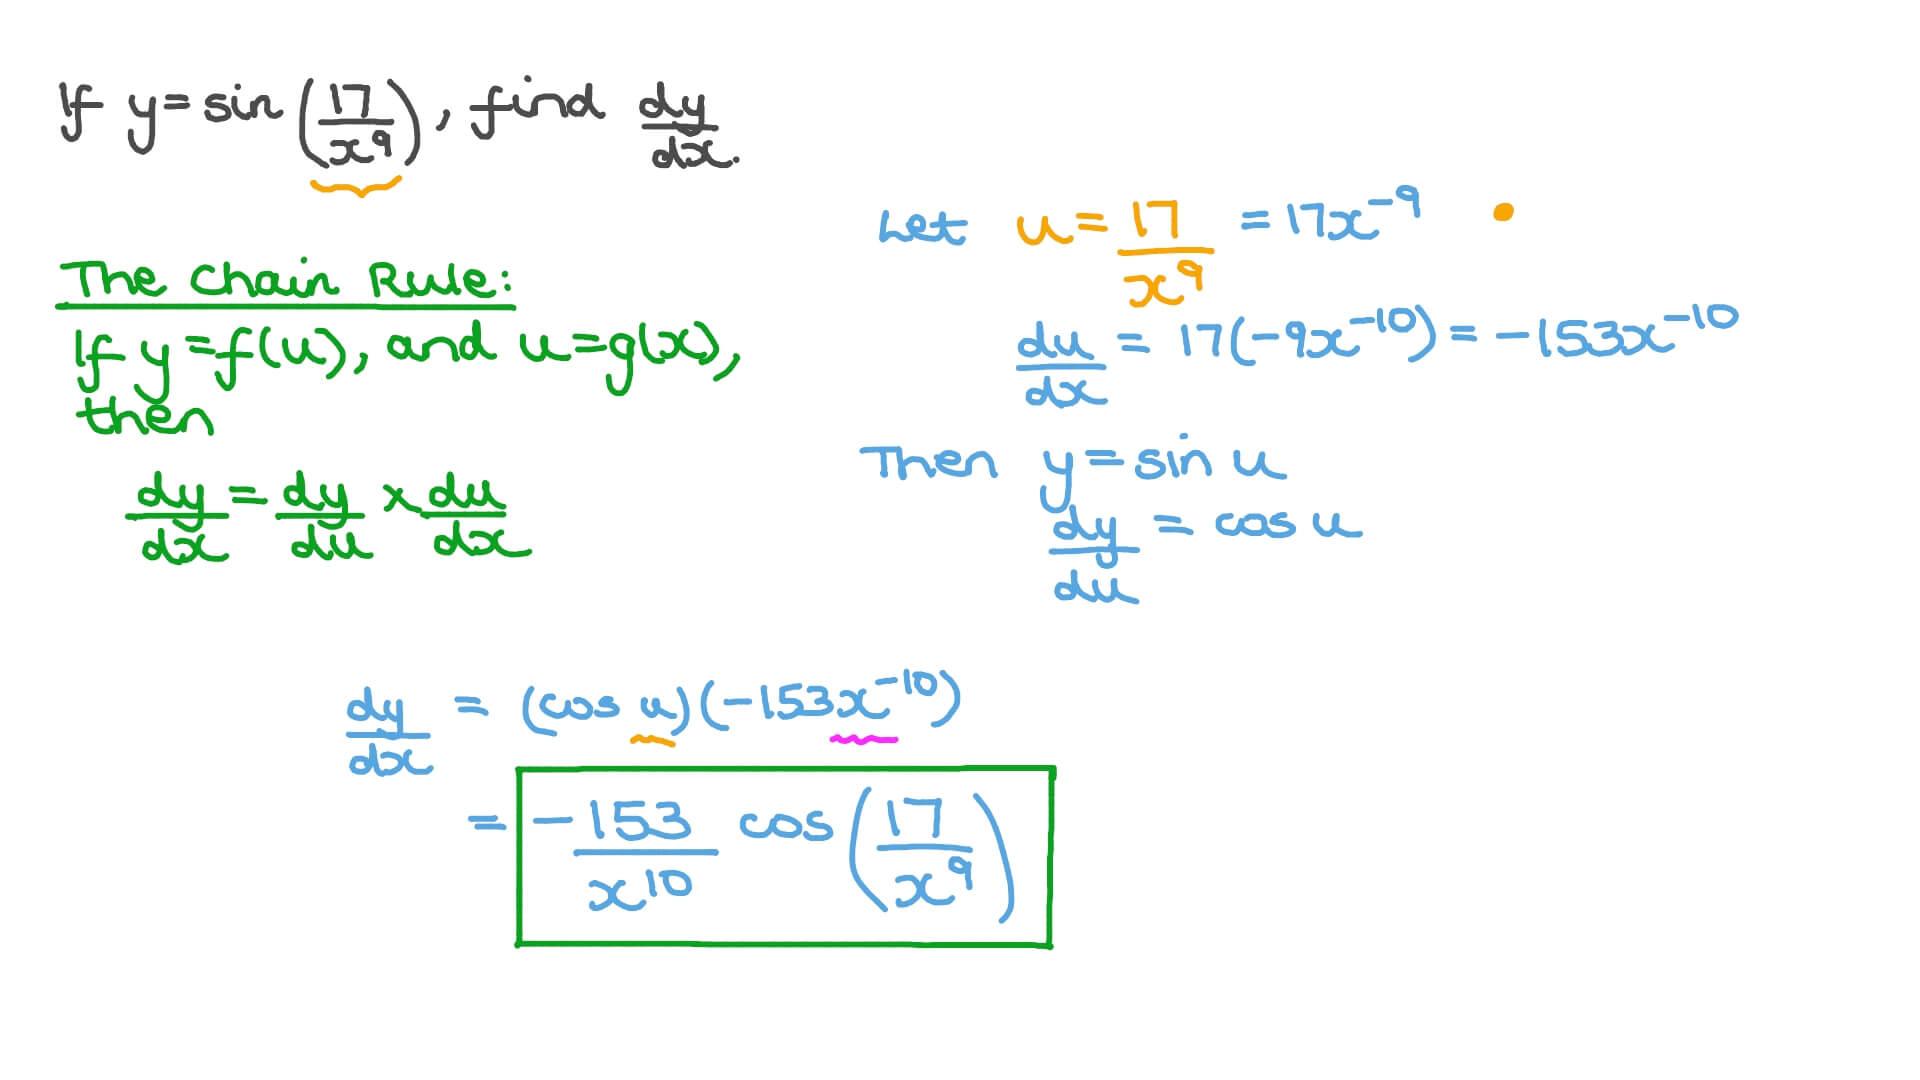 If y = sin (17/x⁹), find dy/dx.
The Chain Rule:
If y = f(u), and u = g(x),
then
dy/dx = dy/du × du/dx
Let u = 17/x⁹ = 17x⁻⁹
du/dx = 17(-9x⁻¹⁰) = -153x⁻¹⁰
Then y = sin u
dy/du = cos u
dy/dx = (cos u)(-153x⁻¹⁰)
= -153/x¹⁰ cos (17/x⁹)